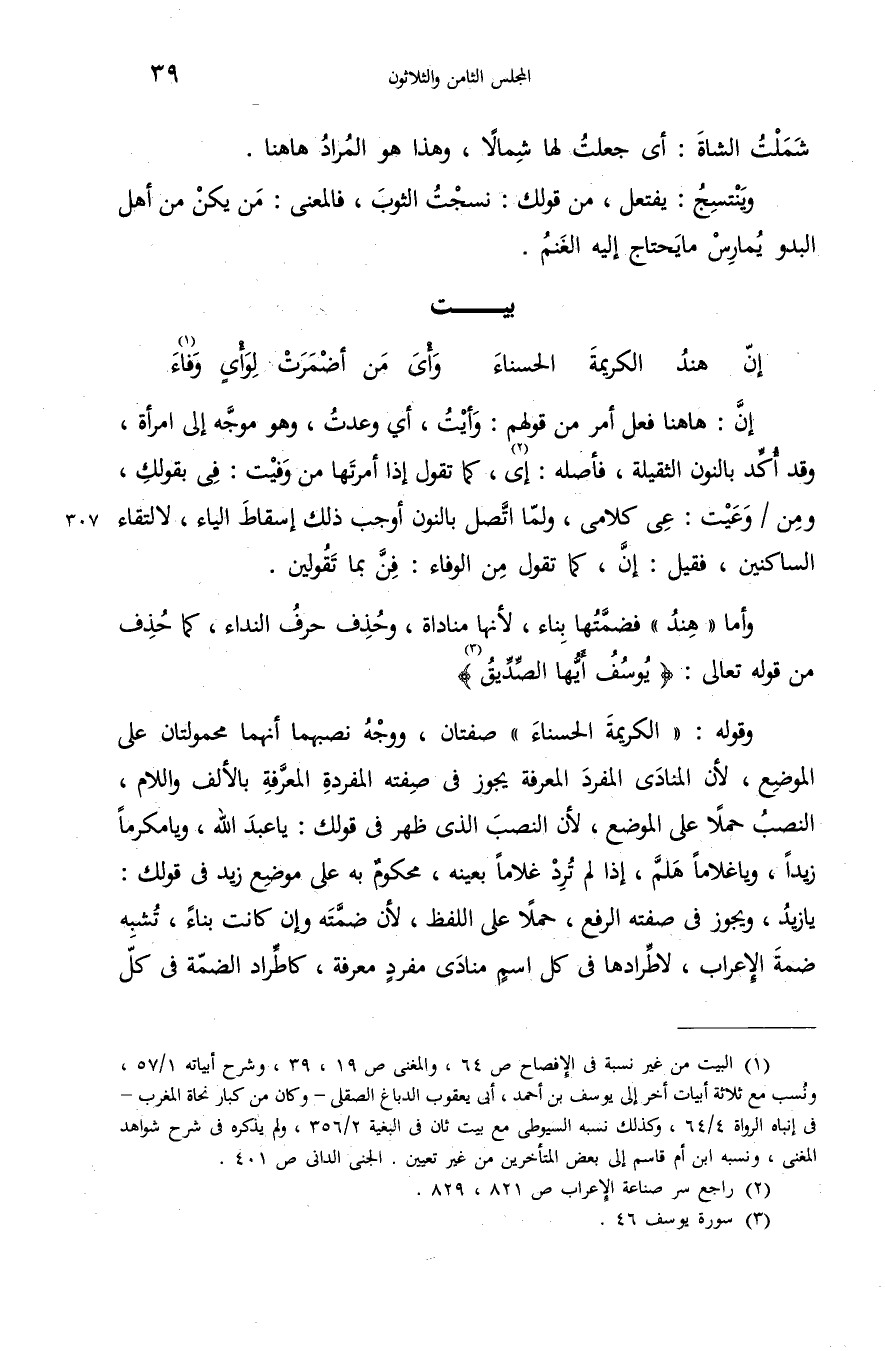 المجلس الثامن والثلاثون ٣٩
شَمَلْتُ الشاةَ : أى جعلتُ لها شِمالًا ، وهذا هو المُرادُ هاهنا .
ويَنْتسِجُ : يفتعل ، من قولك : نسجْتُ الثوبَ ، فالمعنى : مَن يكنْ من أهل
البدو يُمارِسْ مايَحتاج إليه الغَنمُ .
بيـــت
إنّ هندُ الكريمةَ الحسناءَ وَأْىَ مَن أضْمَرَتْ لِوَأْىٍ وَفاءَ (١)
إنَّ : هاهنا فعل أمر من قولهم : وَأَيْتُ ، أي وعدتُ ، وهو موجَّه إلى امرأة ،
وقد أُكِّد بالنون الثقيلة ، فأصله : إى (٢) ، كما تقول إذا أمرتَها من وَفَيْت : فِى بقولكِ ،
ومِن / وَعَيْت : عِى كلامى ، ولمّا اتَّصل بالنون أوجب ذلك إسقاطَ الياء ، لالتقاء ٣٠٧
الساكنين ، فقيل : إنَّ ، كما تقول مِن الوفاء : فِنَّ بما تَقُولين .
وأما « هِندُ » فضمَّتُها بناء ، لأنها مناداة ، وحُذِف حرفُ النداء ، كما حُذِف
من قوله تعالى : ﴿ يُوسُفُ أَيُّها الصِّدِّيقُ ﴾ (٣)
وقوله : « الكريمةَ الحسناءَ » صفتان ، ووجْهُ نصبهما أنهما محمولتان على
الموضِع ، لأن المنادَى المفردَ المعرفة يجوز فى صفته المفردةِ المعرَّفةِ بالألف واللام ،
النصبُ حملًا على الموضع ، لأن النصبَ الذى ظهر فى قولك : ياعبدَ الله ، ويامكرماً
زيداً ، وياغلاماً هَلمَّ ، إذا لم تُرِدْ غلاماً بعينه ، محكومٌ به على موضِع زيد فى قولك :
يازيدُ ، ويجوز فى صفته الرفع ، حملًا على اللفظ ، لأن ضمَّتَه وإن كانت بناءً ، تُشبِه
ضمةَ الإعراب ، لاطِّرادها فى كل اسمٍ منادَى مفردٍ معرفة ، كاطِّراد الضمّة فى كلّ
(١) البيت من غير نسبة فى الإفصاح ص ٦٤ ، والمغنى ص ١٩ ، ٣٩ ، وشرح أبياته ٥٧/١ ،
ونُسب مع ثلاثة أبيات أخر إلى يوسف بن أحمد ، أبى يعقوب الدباغ الصقلى – وكان من كبار نحاة المغرب –
فى إنباه الرواة ٦٤/٤ ، وكذلك نسبه السيوطى مع بيت ثان فى البغية ٣٥٦/٢ ، ولم يذكره فى شرح شواهد
المغنى ، ونسبه ابن أم قاسم إلى بعض المتأخرين من غير تعيين . الجنى الدانى ص ٤٠١ .
(٢) راجع سر صناعة الإعراب ص ٨٢١ ، ٨٢٩ .
(٣) سورة يوسف ٤٦ .